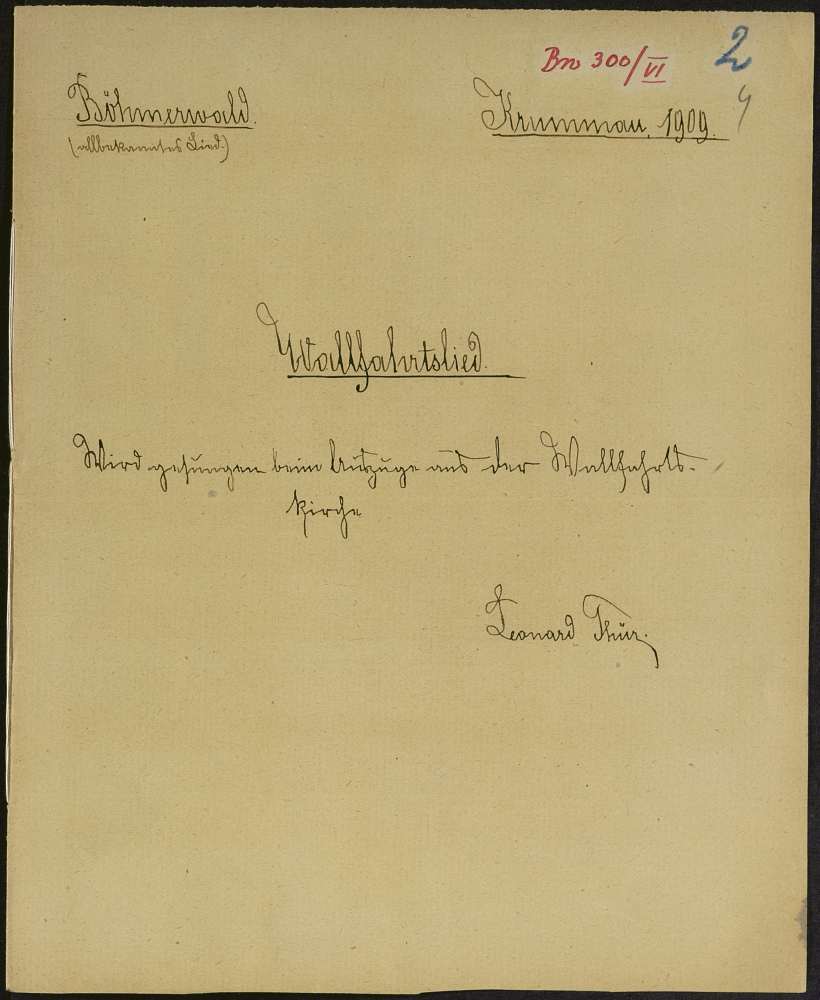 Bn 300/VI 2
4
Böhmerwald. Krummau, 1909.
(allbekanntes Lied.)
Wallfahrtslied.
Wird gesungen beim Auszuge aus der Wallfahrts-
kirche
Leonard Thür.